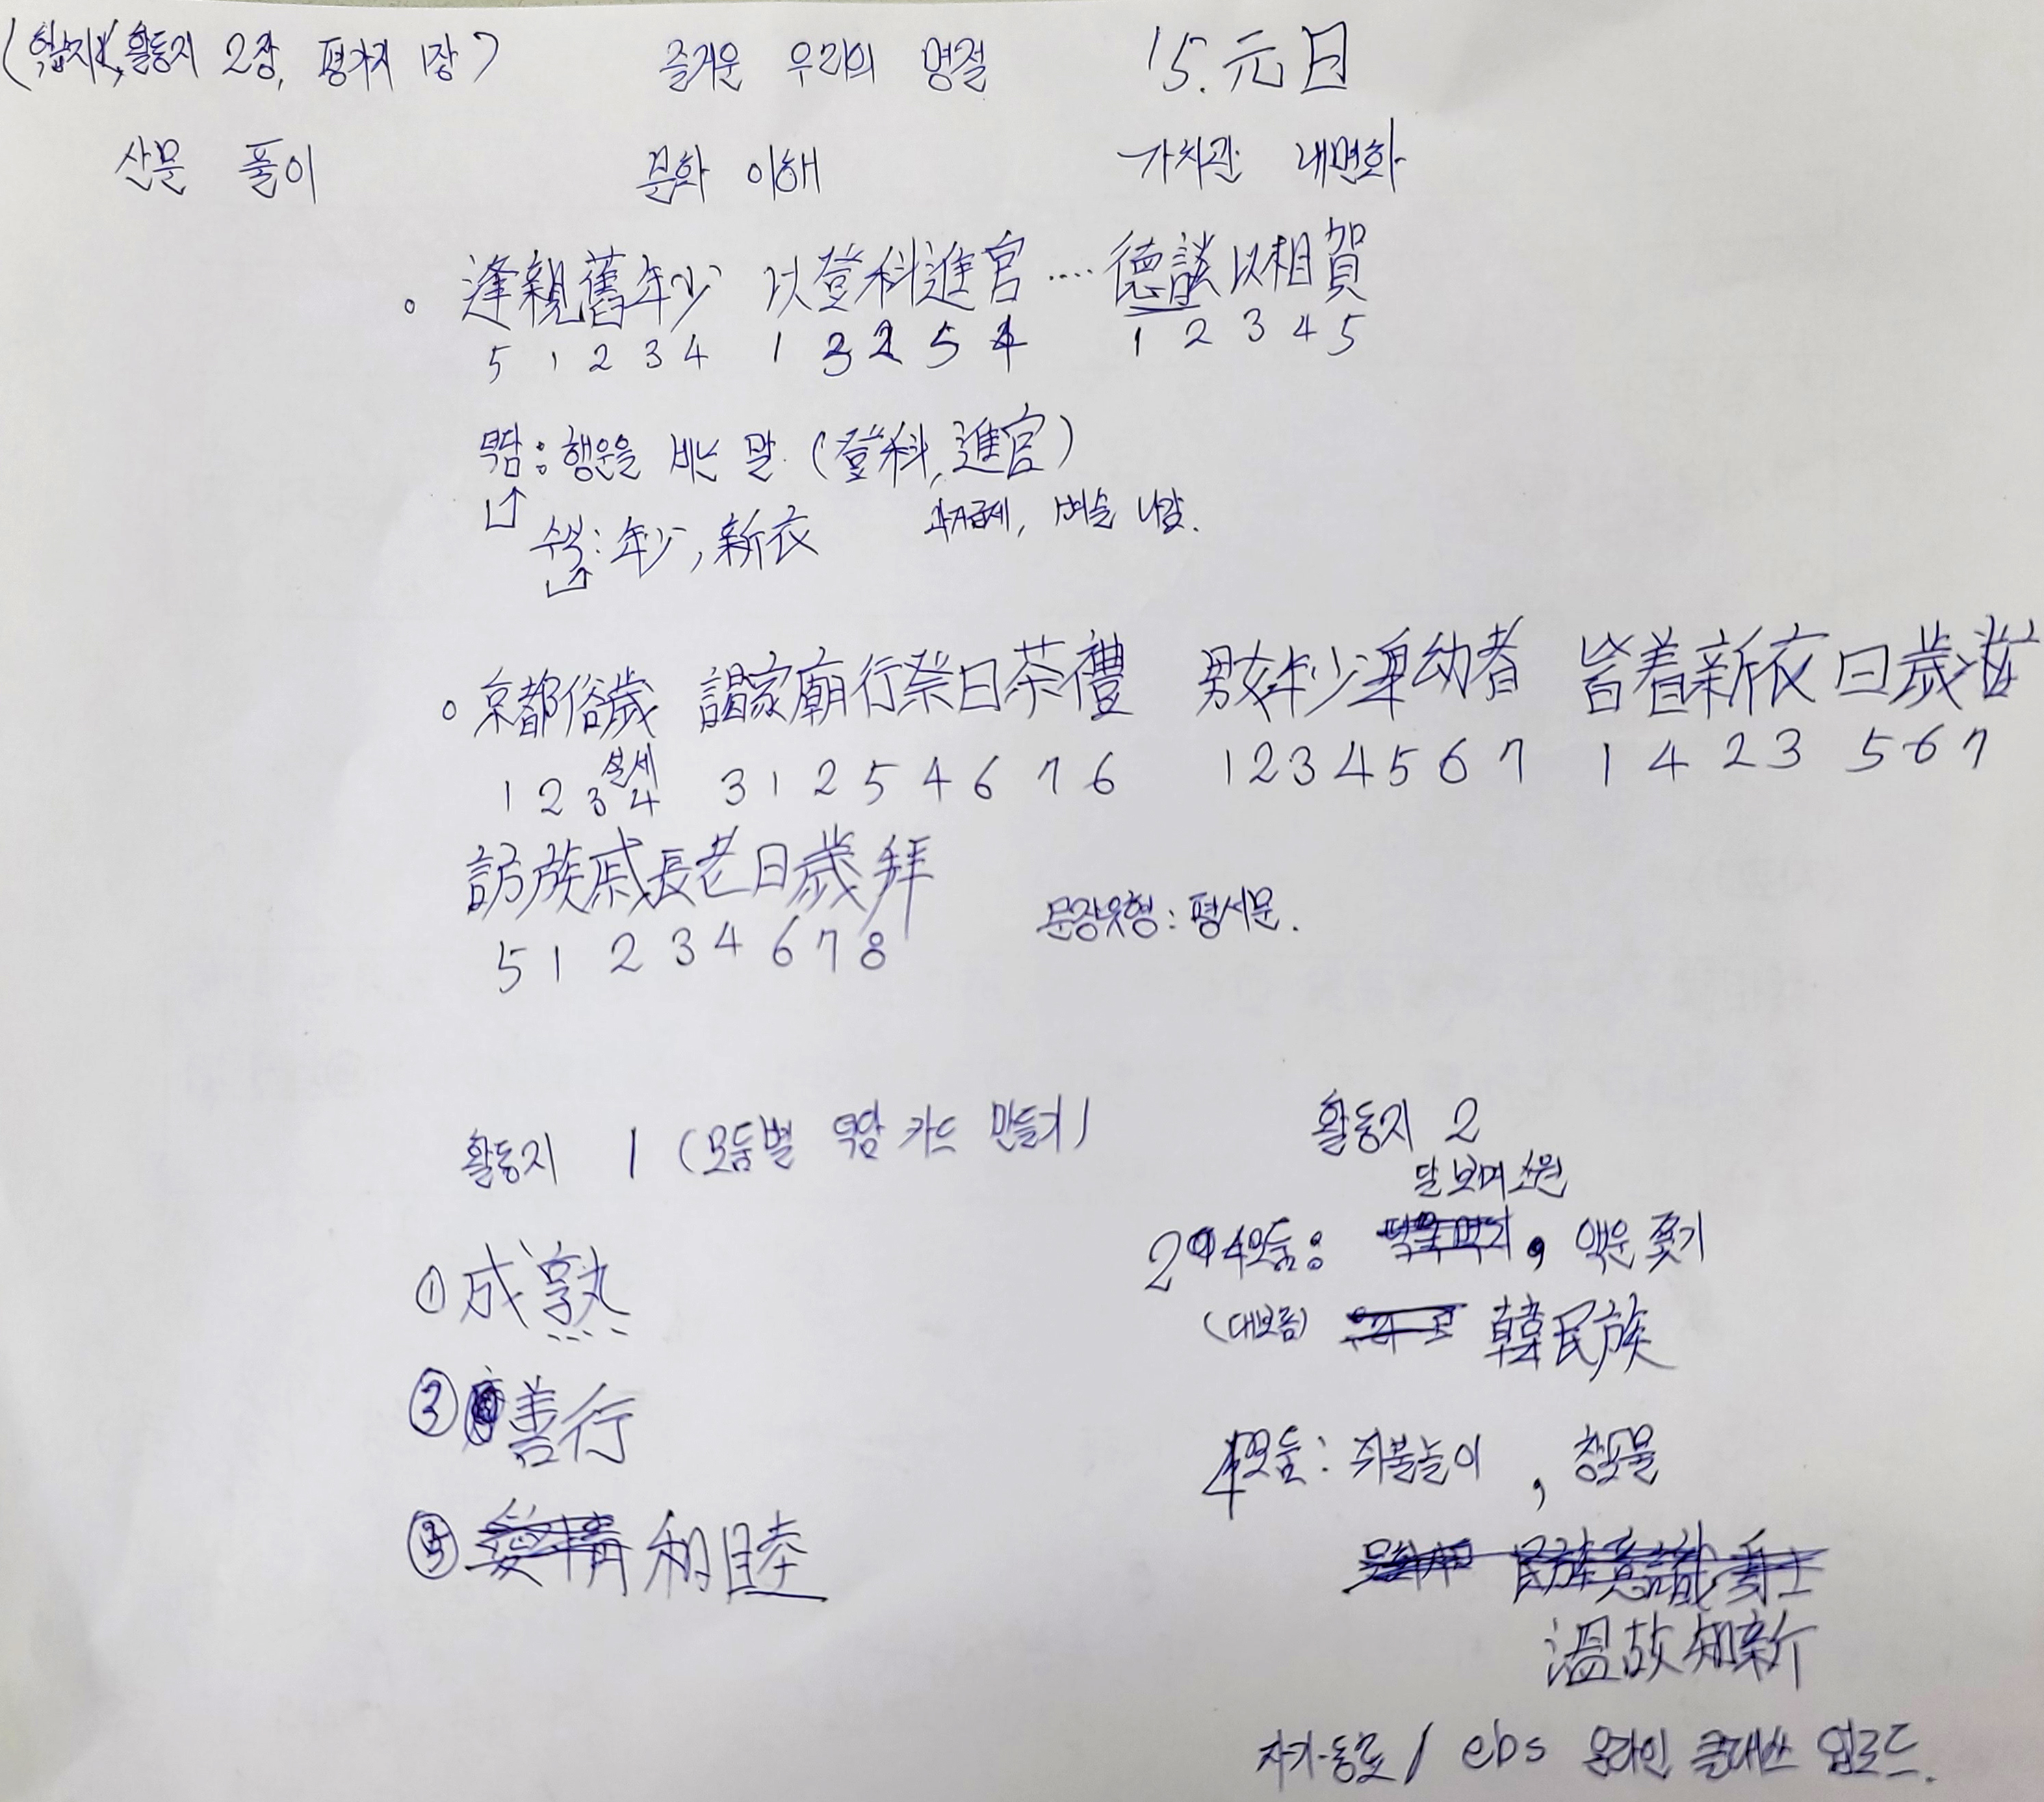 (학습지, 활동지 2장, 평가지 1장) 즐거운 우리의 명절 15. 元日
산문 풀이 문화 이해 가치관 내면화
。 逢親舊年少 以登科進官 .... 德談以相賀
5 1 2 3 4 1 3 2 5 4 1 2 3 4 5
덕담 : 행운을 비는 말 (登科, 進官)
수식 : 年少, 新衣 과거급제, 벼슬 나감.
。 京都俗歲 謁家廟行祭曰茶禮 男女年少卑幼者 皆着新衣曰歲粧
설세
1 2 3 4 3 1 2 5 4 6 7 6 1 2 3 4 5 6 7 1 4 2 3 5 6 7
訪族戚長老曰歲拜
문장유형 : 평서문.
5 1 2 3 4 6 7 8
활동지 1 (모둠별 덕담 카드 만들기) 활동지 2
달 보며 소원
① 成熟
2 4모둠 : , 액운 쫓기
(대보름) 韓民族
② 善行
4모둠 : 쥐불놀이 , 창포물
③ 愛情 和睦
民族意識
溫故知新
자기·동료 / ebs 온라인 클래스 업로드.